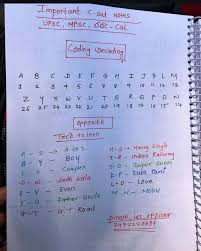 Important C-Sat Notes
UPSC, MPSC, SSC-CGL
Coding Decoding
A B C D E F G H I J K L M
1 2 3 4 5 6 7 8 9 10 11 12 13
Z Y X W V U T S R Q P O N
26 25 24 23 22 21 20 19 18 17 16 15 14
opposite
Trick to learn
A - Z → A to Z
B - Y - Boy
C - X -
D - W - Dudh wala
E - V - Even
F - U - Father Uncle
G - T - G-T Road
H - S - Singh
I - R - Indian Railway
J - Q - Queen
K - P -
L - O - Love
M - N - MOON